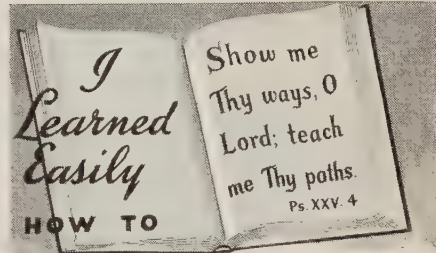 I
Learned
Easily
HOW TO
Show me
Thy ways, O
Lord; teach
me Thy paths.
Ps. XXV. 4